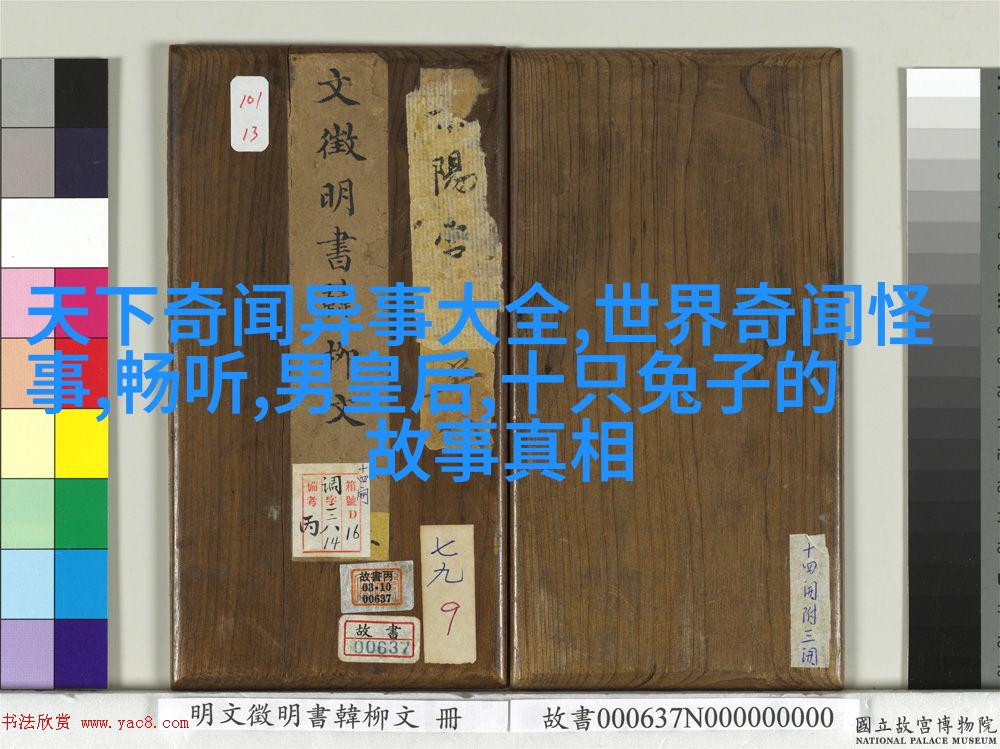 101
13
文徵明書韓柳文
陽宮
天下奇闻异事大全,世界奇闻怪
事,畅听,男皇后,十只兔子的
故事真相
十四開
箱號D16
调字三八14
備考丙
故書丙
03·10
00637
故書
00637
七九
9
十四開附三開
書法欣赏 www.yac8.com
明文徵明書韓柳文 冊
故書000637N000000000
國立故宮博物院
NATIONAL PALACE MUSEUM